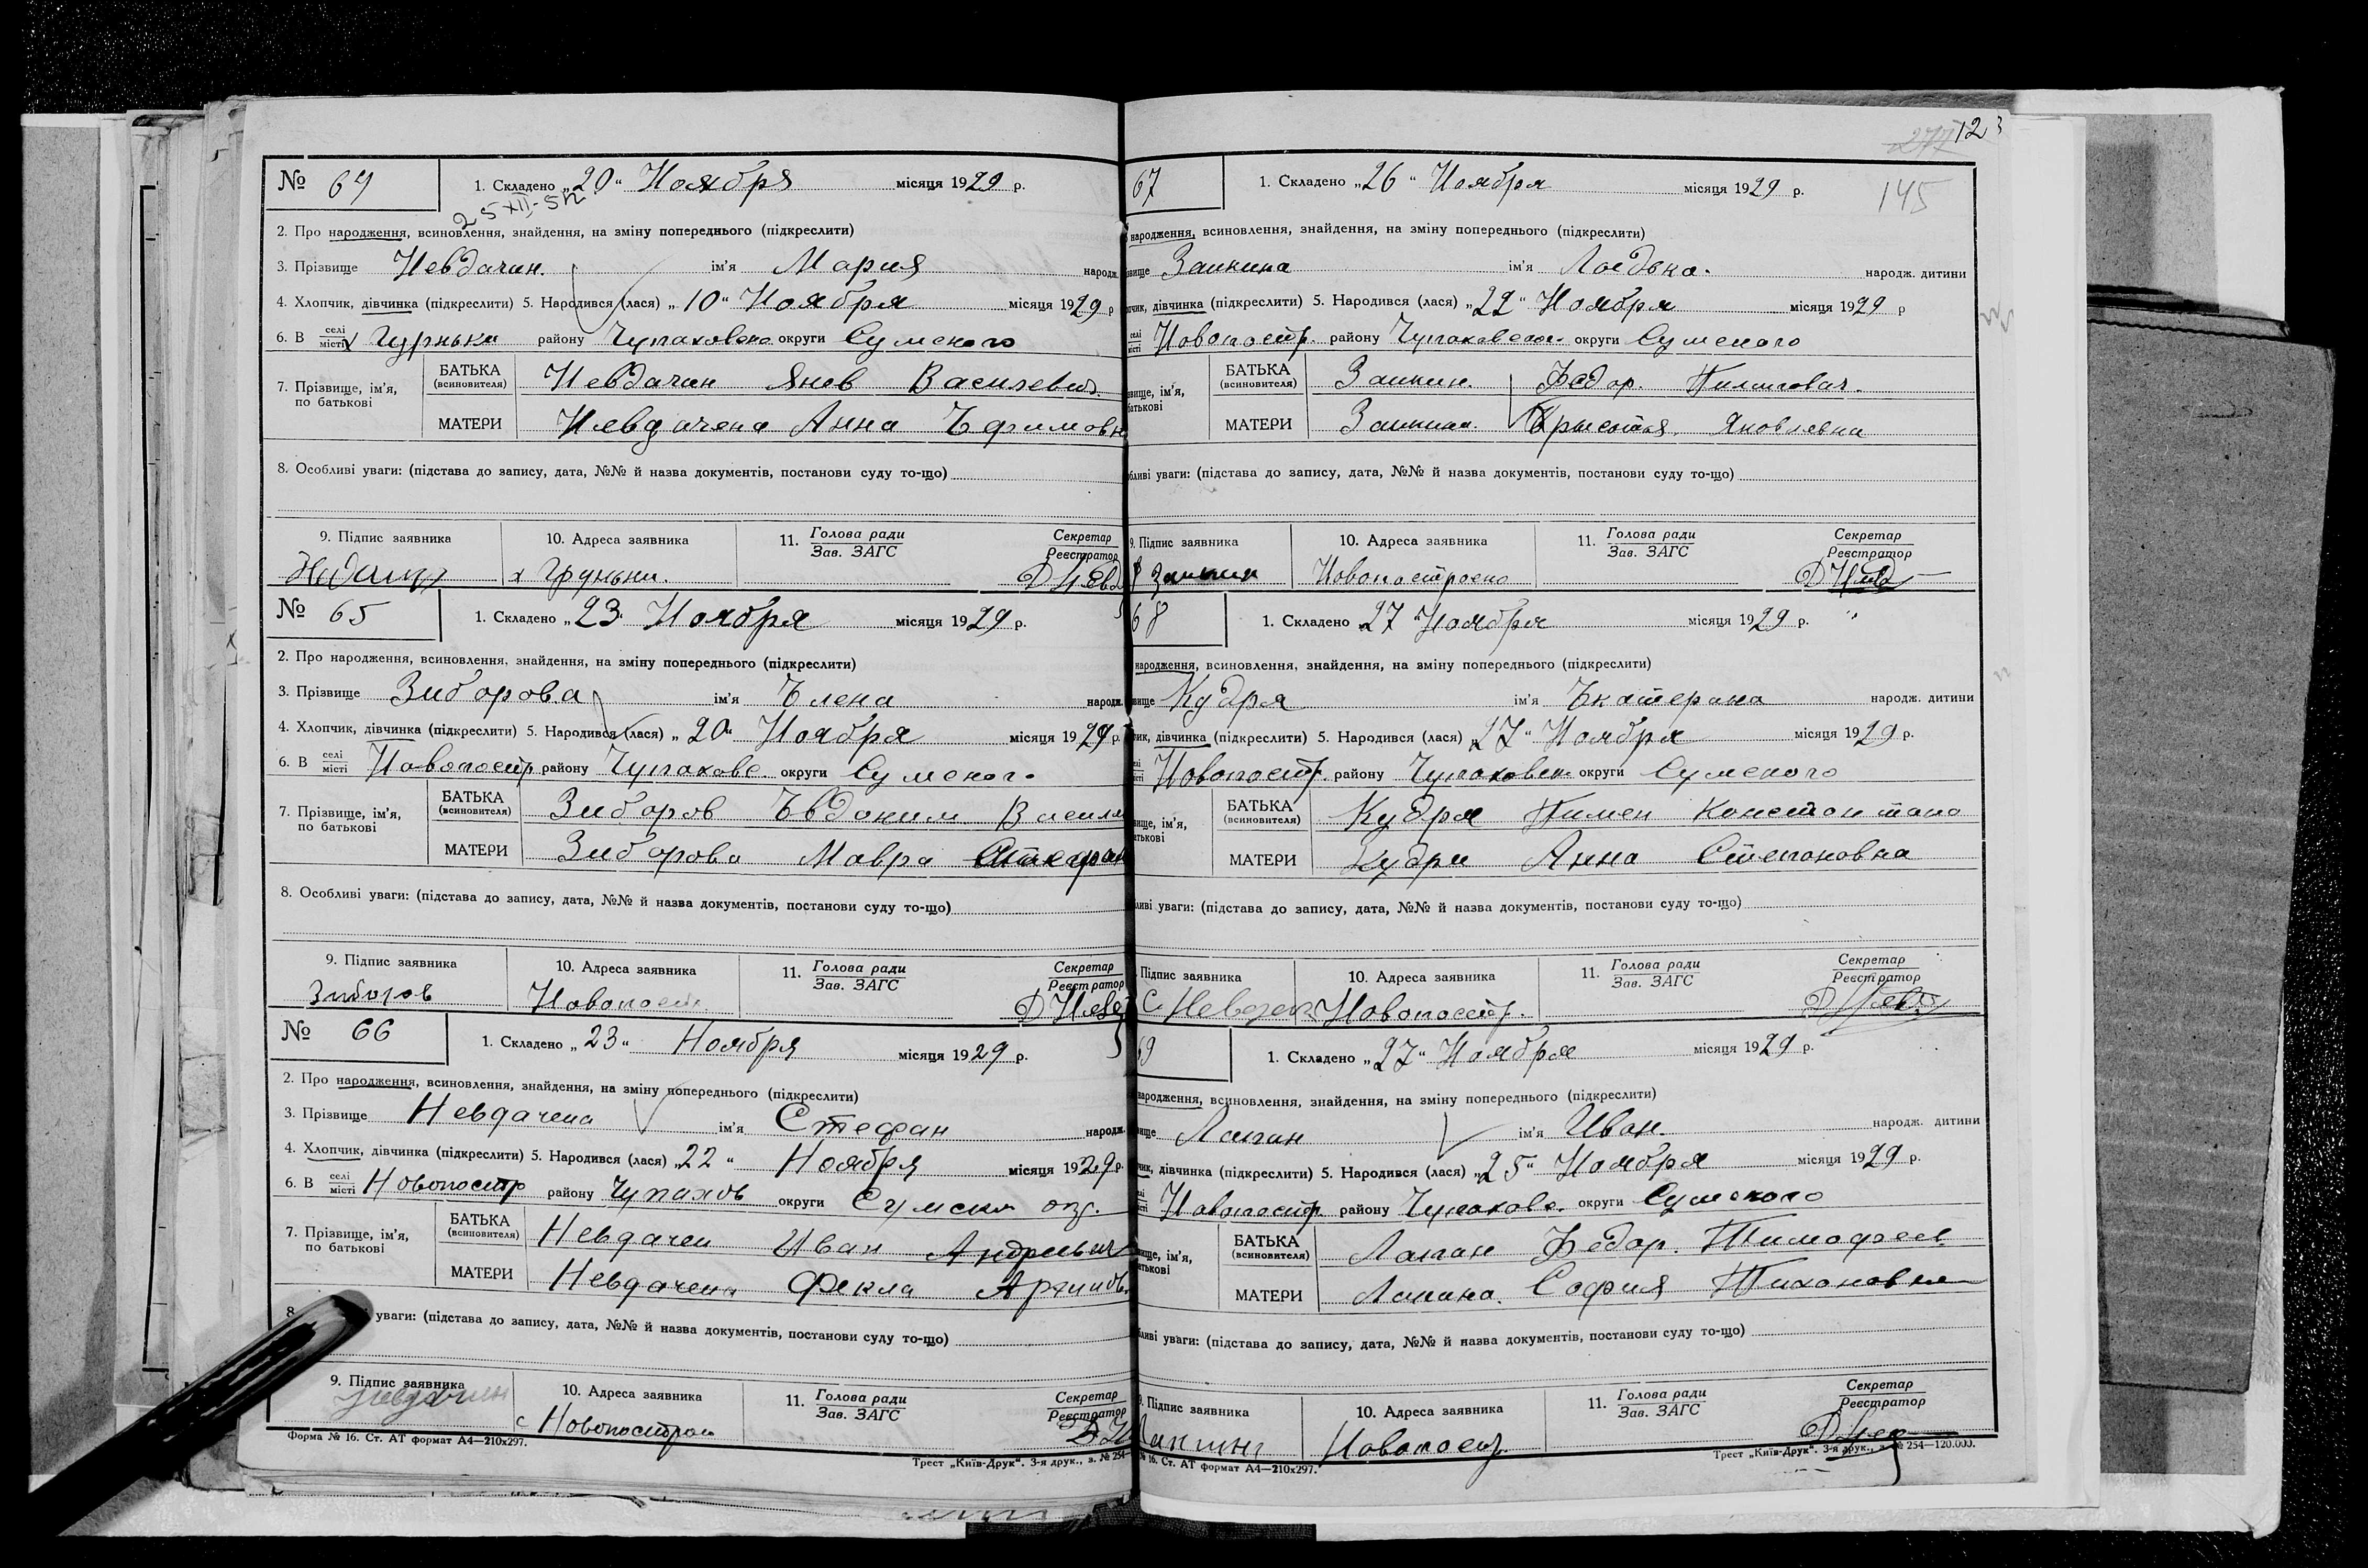 № 64
1. Складено „20“ Ноября місяця 1929 р.
25 XII-52
2. Про народження, всиновлення, знайдення, на зміну попереднього (підкреслити)
3. Прізвище Невдачин. ім'я Мария народж.
4. Хлопчик, дівчинка (підкреслити) 5. Народився (лася) „10“ Ноября місяця 1929 р
6. В селі місті району Чупаховско округи Сумского
7. Прізвище, ім'я, по батькові
БАТЬКА (всиновителя) Невдачин Янов Василевич
МАТЕРИ Невдачена Анна Ефимовн
8. Особливі уваги: (підстава до запису, дата, №№ й назва документів, постанови суду то-що)
9. Підпис заявника 10. Адреса заявника 11. Голова ради Зав. ЗАГС Секретар Реєстратор
х Груньки. Д Невд
№ 65
1. Складено „23“ Ноября місяця 1929 р.
2. Про народження, всиновлення, знайдення, на зміну попереднього (підкреслити)
3. Прізвище Зиборова ім'я Елена народж.
4. Хлопчик, дівчинка (підкреслити) 5. Народився (лася) „20“ Ноября місяця 1929 р.
6. В селі місті Новопостр району Чупахове. округи Сумского
7. Прізвище, ім'я, по батькові
БАТЬКА (всиновителя) Зиборов Евдоким Васили
МАТЕРИ Зиборова Мавра
8. Особливі уваги: (підстава до запису, дата, №№ й назва документів, постанови суду то-що)
9. Підпис заявника 10. Адреса заявника 11. Голова ради Зав. ЗАГС Секретар Реєстратор
Зиборов Новопост. Д Невд
№ 66
1. Складено „23“ Ноября місяця 1929 р.
2. Про народження, всиновлення, знайдення, на зміну попереднього (підкреслити)
3. Прізвище Невдачена ім'я Стефан народж.
4. Хлопчик, дівчинка (підкреслити) 5. Народився (лася) „22“ Ноября місяця 1929 р.
6. В селі місті Новопостр району Чупахов округи Сумски окр.
7. Прізвище, ім'я, по батькові
БАТЬКА (всиновителя) Невдачен Иван Андреевич
МАТЕРИ Невдачена Фекла
8. уваги: (підстава до запису, дата, №№ й назва документів, постанови суду то-що)
9. Підпис заявника 10. Адреса заявника 11. Голова ради Зав. ЗАГС Секретар Реєстратор
Невдачин с Новопострои Д Н
Форма № 16. Ст. АТ формат А4—210х297.
Трест „Київ-Друк“. 3-я друк., з. № 254—
277 123
145
67
1. Складено „26“ Ноября місяця 1929 р.
народження, всиновлення, знайдення, на зміну попереднього (підкреслити)
звище Заикина ім'я народж. дитини
пчик, дівчинка (підкреслити) 5. Народився (лася) „22“ Ноября місяця 1929 р
селі місті Новопостр. району Чупаховског округи Сумского
звище, ім'я, батькові
БАТЬКА (всиновителя) Заикин. Федор. Пилипович.
МАТЕРИ Заикина. Яковлевна
обливі уваги: (підстава до запису, дата, №№ й назва документів, постанови суду то-що)
9. Підпис заявника 10. Адреса заявника 11. Голова ради Зав. ЗАГС Секретар Реєстратор
Заикин Новопостроено Д Невд
68
1. Складено „27“ Ноября місяця 1929 р.
народження, всиновлення, знайдення, на зміну попереднього (підкреслити)
вище Кудря ім'я Екатерина народж. дитини
чик, дівчинка (підкреслити) 5. Народився (лася) „27“ Ноября місяця 1929 р.
місті Новопостр. району Чупаховск округи Сумского
звище, ім'я, батькові
БАТЬКА (всиновителя) Кудря Пимен Константино
МАТЕРИ Кудря Анна Степановна
ливі уваги: (підстава до запису, дата, №№ й назва документів, постанови суду то-що)
Підпис заявника 10. Адреса заявника 11. Голова ради Зав. ЗАГС Секретар Реєстратор
Новопостр. Д Невд
69
1. Складено „27“ Ноября місяця 1929 р.
народження, всиновлення, знайдення, на зміну попереднього (підкреслити)
вище Лапин ім'я Иван. народж. дитини
чик, дівчинка (підкреслити) 5. Народився (лася) „25“ Ноября місяця 1929 р.
місті Новопостр. району Чупахово. округи Сумского
вище, ім'я, батькові
БАТЬКА (всиновителя) Лапин Федор. Тимофеев.
МАТЕРИ Лапина. София Тихоновна
ливі уваги: (підстава до запису, дата, №№ й назва документів, постанови суду то-що)
9. Підпис заявника 10. Адреса заявника 11. Голова ради Зав. ЗАГС Секретар Реєстратор
Новопостр. Д Нев
№ 16. Ст. АТ формат А4—210х297.
Трест „Київ-Друк“. 3-я друк., з. № 254—120.000.